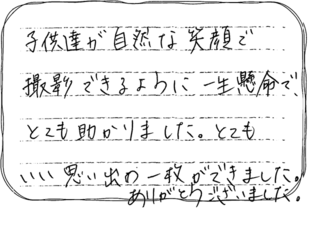 子供達が自然な笑顔で
撮影できるように一生懸命で、
とても助かりました。とても
いい思い出の一枚ができました。
ありがとうございました。